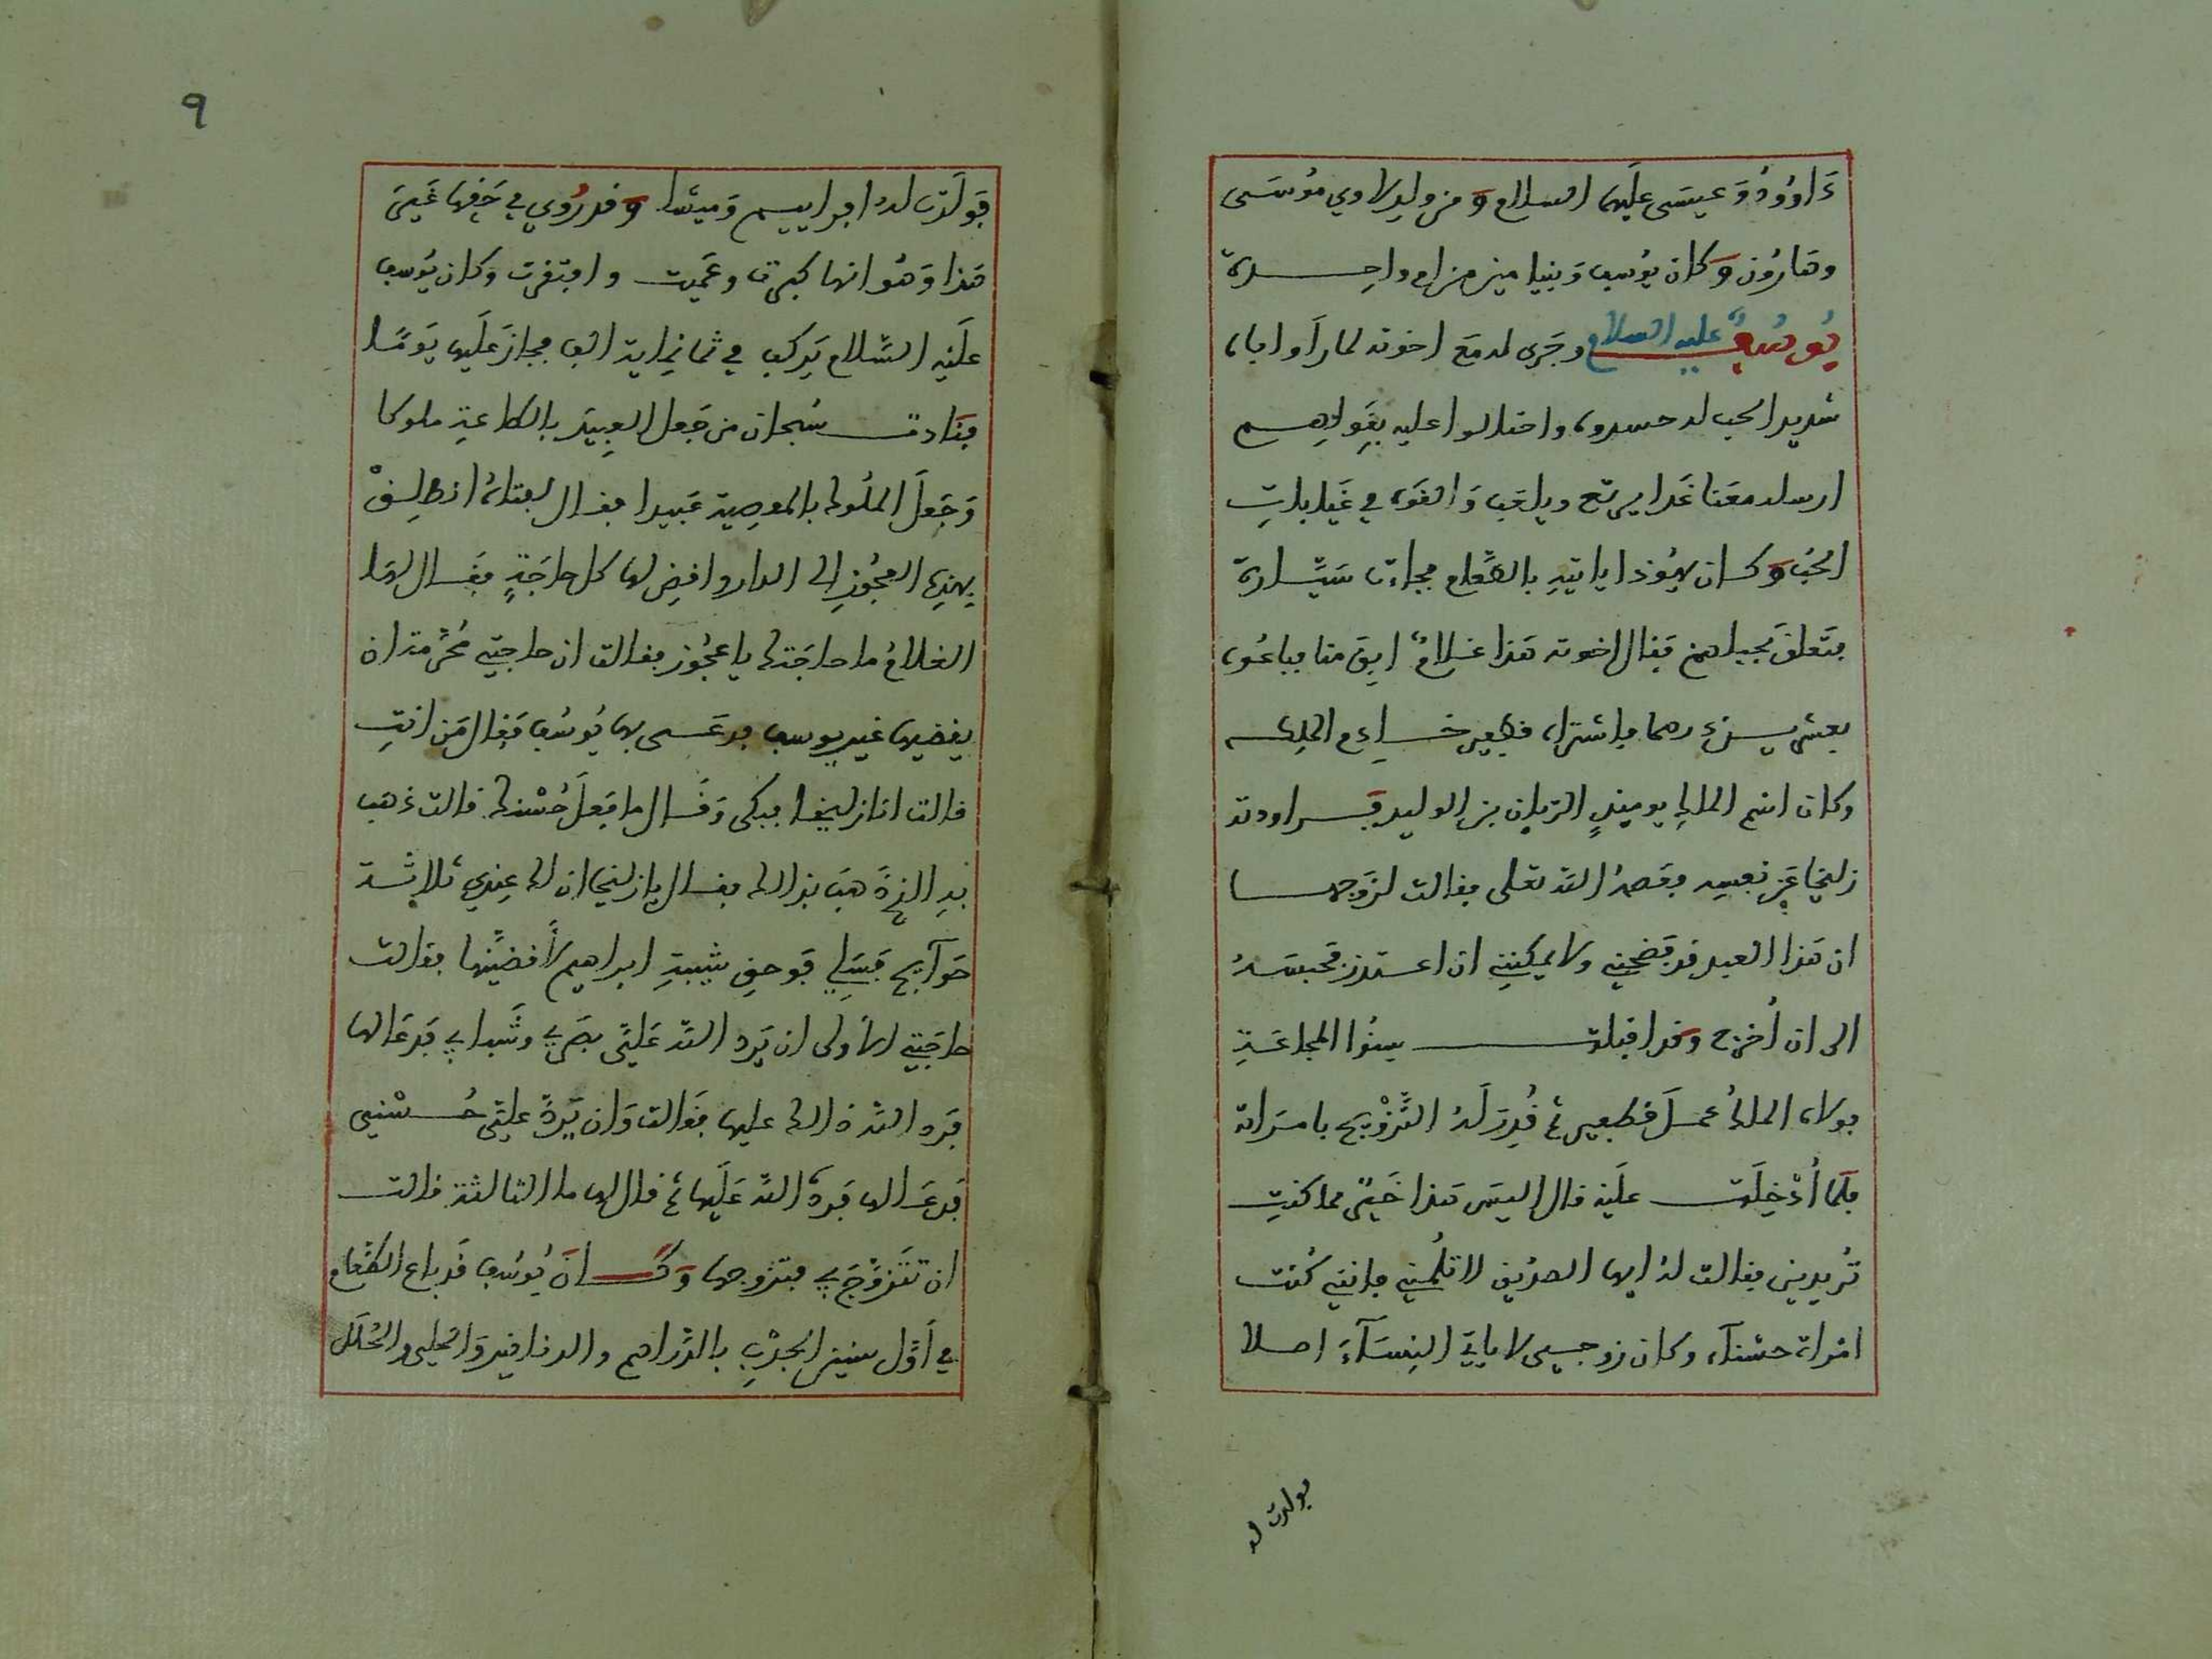 دَاوُودُ وَعيسَى علَيهما السلام وَمن ولد لاوي مُوسَى
وهَارُون وَكان يوُسف وَبنيامين من ام واحِدة
يُوسُفُ عليه السلام وجَرى له مَع اخوته لما رَأَوا اباه
شديد الحب له حسدوه واحتالوا عليه بقَولهم
ارسله معَنا غَدا يرتع ويلعَب وَالقَوه في غَيابات
الجُب وَكان يهُوذا ياتيه بالطَّعام فجاءت سَيَّارة
فتَعلقَ بحبلهم فقال اخوته هَذا غلامٌ ابِق منا فباعُوه
بعشرين درهما فاشتراه قطفير خازن الملك
وكان اسم الملك يوميذٍ الريان بن الوليد فراودته
زليخا عَن نفسه فعَصمهُ الله تعلى فقالت لزَوجها
ان هَذا العبد قد فَضحني ولا يمكنني ان اعتذر فحبسَهُ
الى ان أُخرج وَقد اقبلت سِنُوا المجاعَة
فولاه الملكُ عمَلَ قطفير ثم قُدِرَ لَهُ التَّزْويج بامرَاته
فلَما أُدْخِلَت علَيه قال اليسَ هَذا خَيرٌ مما كنتِ
تُريدين فقالت لهُ ايها الصديق لا تلُمني فإنني كُنت
امراة حسْنآء وكان زوجى لا ياتي النِسَآءَ اصلا
فولدت له
٩
فَولَدَت له افراييم وَميشا وَقد رُوي في حَقها غَير
هَذا وَهُو انها كبرت وعَميت وافتقرت وكان يُوسف
علَيه السَّلام يَركب في ثمانماية الف فجازَ علَيها يَومًا
فنَادت سُبحان من جَعل العبيدَ بالطاعة ملوكا
وَجَعلَ الملُوك بالمعصِية عَبيدا فقال لفتاهُ انطلِقْ
بهذه العجُوزِ الى الدار واقضِ لها كل حاجَةٍ فقَال لها
الغلامُ ما حاجَتك يا عجُوز فقالت ان حاجتي مُحرَّمة ان
يقضيها غير يوسف فدعَى بها يُوسُف فقَال مَن انتِ
قالت انا زليخا فبكى وَقَال ما فعَلَ حُسْنك قالت ذهَب
به الذِي ذهَب بذالك فقال يا زليخا ان لك عِندي ثلاثة
حَوآيج فسَلي فَوحق شيبةِ ابراهيم لأَقضيَّنها فقالت
حاجَتي الاُولى ان يَرد الله عَليَّ بصَري وشَبابي فَدعَا لها
فرَد الله ذالك عليها فقَالت وَان يَرُدَّ عليَّ حُسْني
فَدعَا لها فَردهُ الله عَلَيها ثم قال لها ما الثالثة قالت
ان تتَزوَّجَ بي فتزوجها وَكَانَ يُوسُف قَد باع الطَّعام
في أَوَّل سنين الجدْبِ بالدَّراهم والدنانير وَالحلى والحُلل